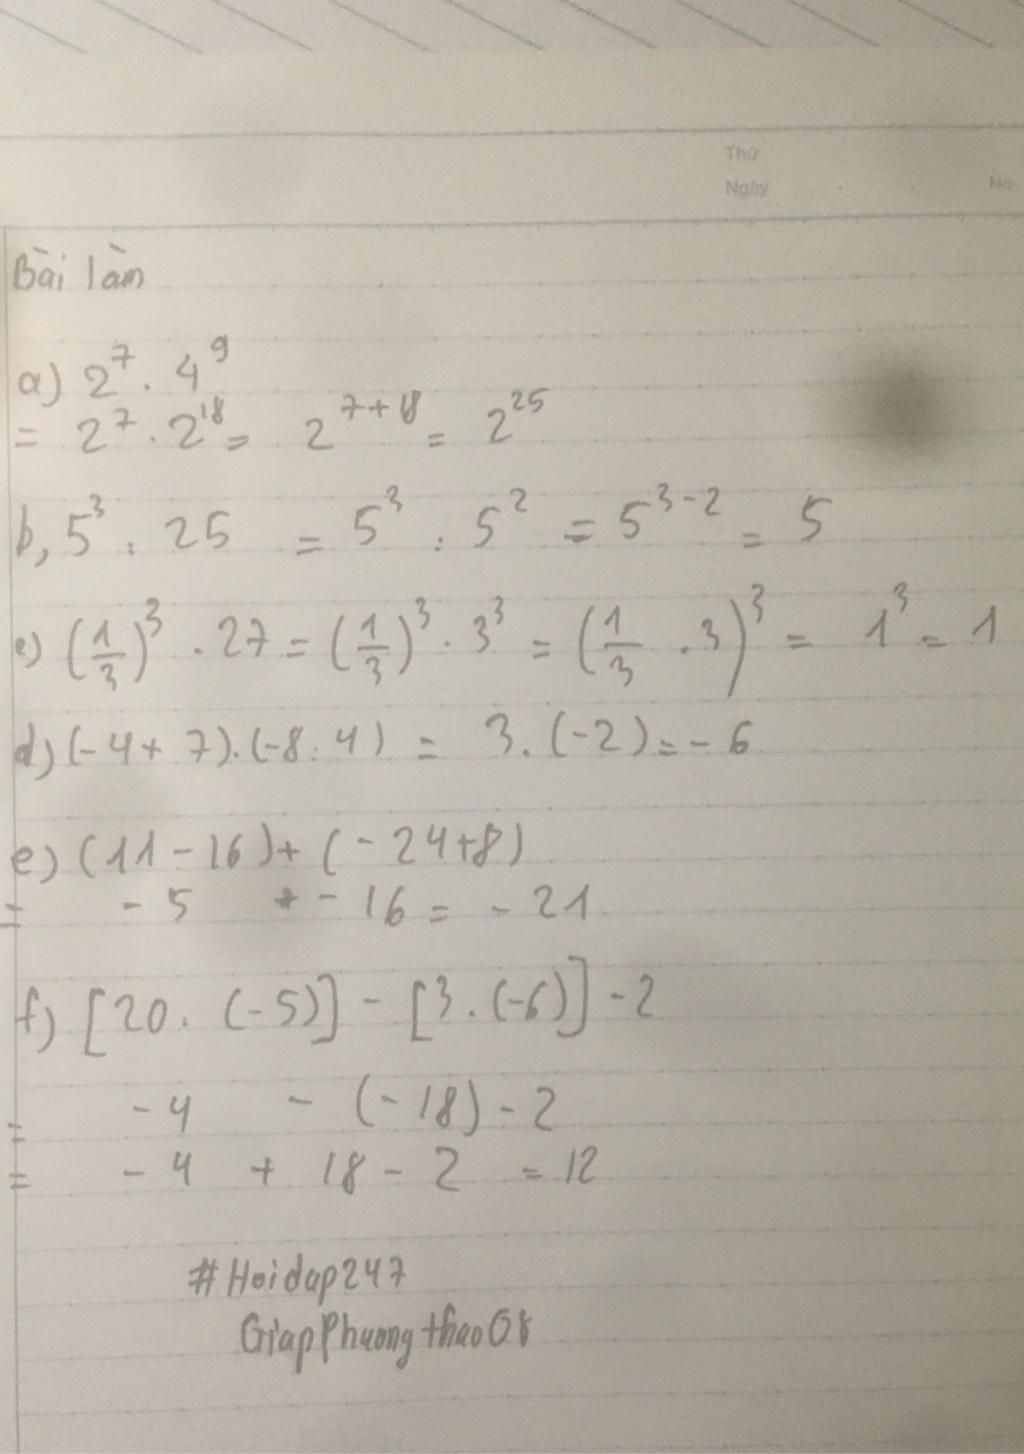 Thứ
Ngày
No
Bài làm
a) 2⁷ . 4⁹
= 2⁷ . 2¹⁸ = 2⁷⁺¹⁸ = 2²⁵
b, 5³ : 25 = 5³ : 5² = 5³⁻² = 5
c) (1/3)³ . 27 = (1/3)³ . 3³ = (1/3 . 3)³ = 1³ = 1
d) (-4 + 7) . (-8 : 4) = 3 . (-2) = - 6
e) (11 - 16) + (- 24 + 8)
= - 5 + - 16 = - 21
f) [20 : (-5)] - [3 . (-6)] - 2
= - 4 - (- 18) - 2
= - 4 + 18 - 2 = 12
#Hoidap247
GiapPhuongthao08